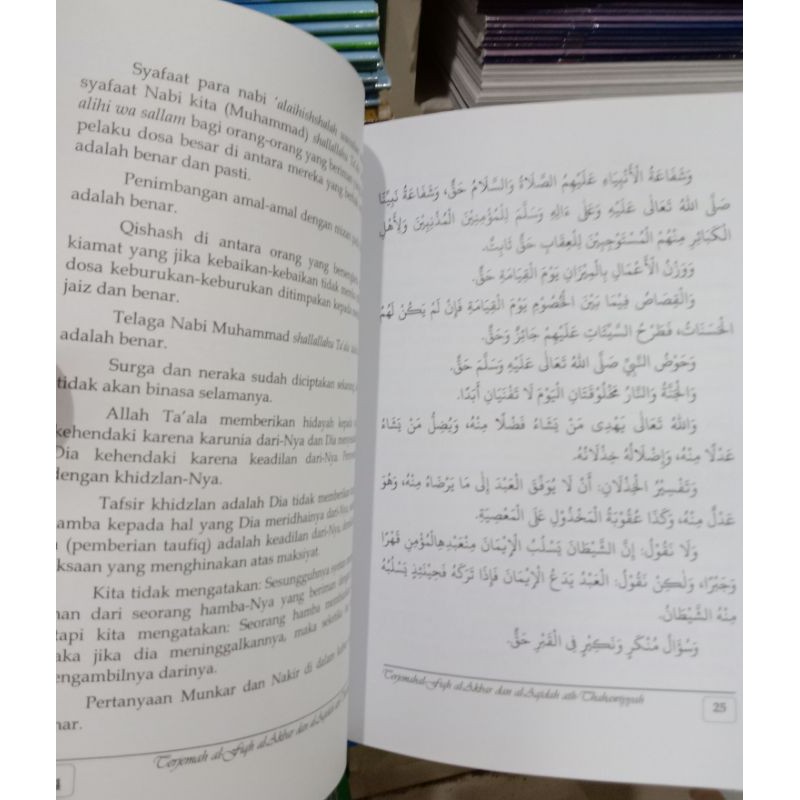 Syafaat para nabi 'alaihishshalah
syafaat Nabi kita (Muhammad) shallallahu Ta'ala
alihi wa sallam bagi orang-orang yang beriman
pelaku dosa besar di antara mereka yang berhak
adalah benar dan pasti.
Penimbangan amal-amal dengan mizan
adalah benar.
Qishash di antara orang yang
kiamat yang jika kebaikan-kebaikan tidak
dosa keburukan-keburukan ditimpakan kepada
jaiz dan benar.
Telaga Nabi Muhammad shallallahu Ta'ala
adalah benar.
Surga dan neraka sudah diciptakan sekarang,
tidak akan binasa selamanya.
Allah Ta'ala memberikan hidayah kepada
kehendaki karena karunia dari-Nya dan Dia
Dia kehendaki karena keadilan dari-Nya.
dengan khidzlan-Nya.
Tafsir khidzlan adalah Dia tidak memberikan
hamba kepada hal yang Dia meridhainya dari-Nya,
(pemberian taufiq) adalah keadilan dari-Nya,
ksaan yang menghinakan atas maksiyat.
Kita tidak mengatakan: Sesungguhnya
nan dari seorang hamba-Nya yang beriman dengan
tapi kita mengatakan: Seorang hamba
aka jika dia meninggalkannya, maka seketika
engambilnya darinya.
Pertanyaan Munkar dan Nakir di dalam kubur
nar.
Terjemah al-Fiqh al-Akbar dan al-Aqidah ath-
وَشَفَاعَةُ الْأَنْبِيَاءِ عَلَيْهِمُ الصَّلَاةُ وَالسَّلَامُ حَقٌّ، وَشَفَاعَةُ نَبِيِّنَا
صَلَّى اللهُ تَعَالَى عَلَيْهِ وَعَلَى ءَالِهِ وَسَلَّمَ لِلْمُؤْمِنِينَ الْمُذْنِبِينَ وَلِأَهْلِ
الْكَبَائِرِ مِنْهُمُ الْمُسْتَوْجِبِينَ لِلْعِقَابِ حَقٌّ ثَابِتٌ.
وَوَزْنُ الْأَعْمَالِ بِالْمِيْزَانِ يَوْمَ الْقِيَامَةِ حَقٌّ.
وَالْقِصَاصُ فِيْمَا بَيْنَ الْخُصُوْمِ يَوْمَ الْقِيَامَةِ فَإِنْ لَمْ يَكُنْ لَهُمُ
الْحَسَنَاتُ، فَطَرْحُ السَّيِّئَاتِ عَلَيْهِمْ جَائِزٌ وَحَقٌّ.
وَحَوْضُ النَّبِيِّ صَلَّى اللهُ تَعَالَى عَلَيْهِ وَسَلَّمَ حَقٌّ.
وَالْجَنَّةُ وَالنَّارُ مَخْلُوْقَتَانِ الْيَوْمَ لَا تَفْنَيَانِ أَبَدًا.
وَاللهُ تَعَالَى يَهْدِى مَنْ يَشَاءُ فَضْلًا مِنْهُ، وَيُضِلُّ مَنْ يَشَاءُ
عَدْلًا مِنْهُ، وَإِضْلَالُهُ خِذْلَانُهُ.
وَتَفْسِيْرُ الْخِذْلَانِ: أَنْ لَا يُوَفِّقَ الْعَبْدَ إِلَى مَا يَرْضَاهُ مِنْهُ، وَهُوَ
عَدْلٌ مِنْهُ، وَكَذَا عُقُوْبَةُ الْمَخْذُوْلِ عَلَى الْمَعْصِيَةِ.
وَلَا نَقُوْلُ: إِنَّ الشَّيْطَانَ يَسْلُبُ الْإِيْمَانَ مِنْعَبْدِهِالْمُؤْمِنِ قَهْرًا
وَجَبْرًا، وَلَكِنْ نَقُوْلُ: الْعَبْدُ يَدَعُ الْإِيْمَانَ فَإِذَا تَرَكَهُ فَحِيْنَئِذٍ يَسْلُبُهُ
مِنْهُ الشَّيْطَانُ.
وَسُؤَالُ مُنْكَرٍ وَنَكِيْرٍ فِى الْقَبْرِ حَقٌّ.
Terjemahal-Fiqh al-Akbar dan al-Aqidah ath-Thahawiyyah
25